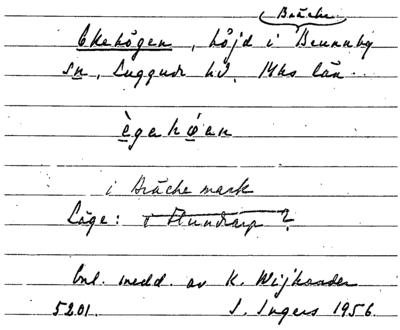 Bräcke
Ekehögen, höjd i Brunnby
sn, Luggude hd, Mhs län.
ègahǿen
i Bräcke mark
Läge: i Flundrarp?
Enl. medd. av K. Wijkander
5201. I. Ingers 1956.